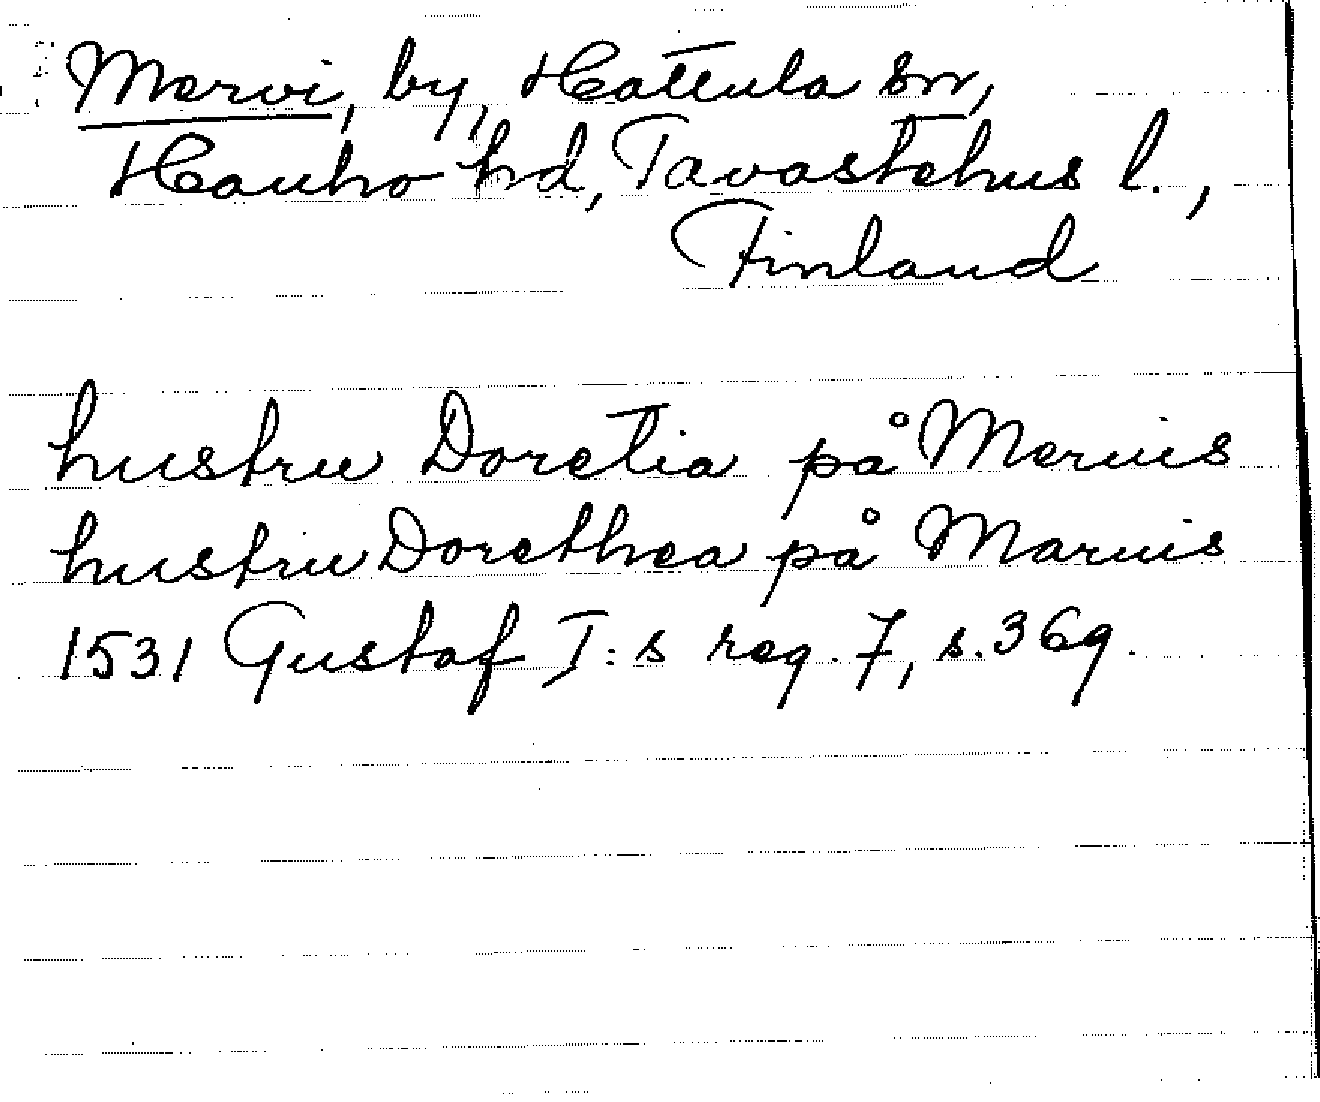 Mervi, by, Hattula sn,
Hauho hd, Tavastehus l.,
Finland
hustru Doretia på Meruis
hustru Dorethea på Maruis
1531 Gustaf I:s reg. 7, s. 369.